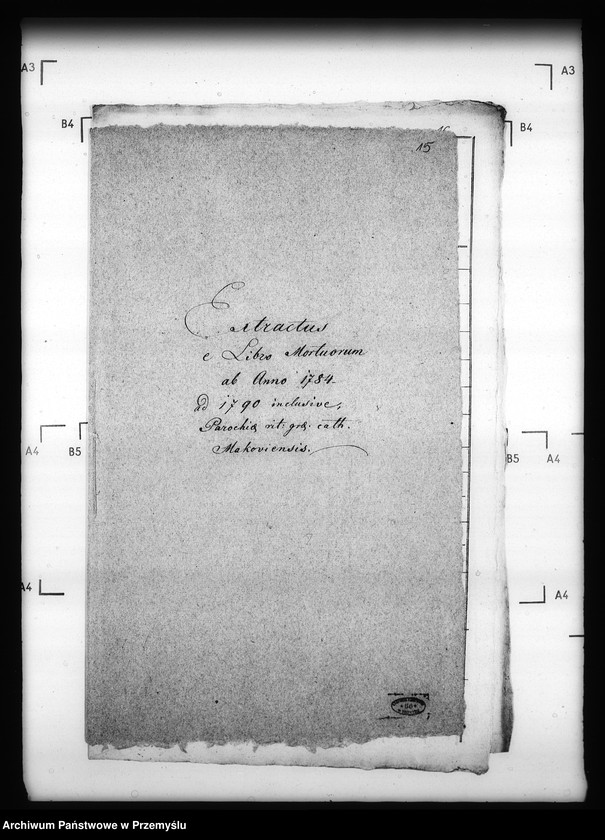 A3
A3
B4
B4
15
Extractus
e Libro Mortuorum
ab Anno 1784
ad 1790 inclusive,
Parochiæ rit: gr: cath.
Makoviensis.
A4
B5
B5
A4
A4
A4
Archiwum Państwowe w Przemyślu